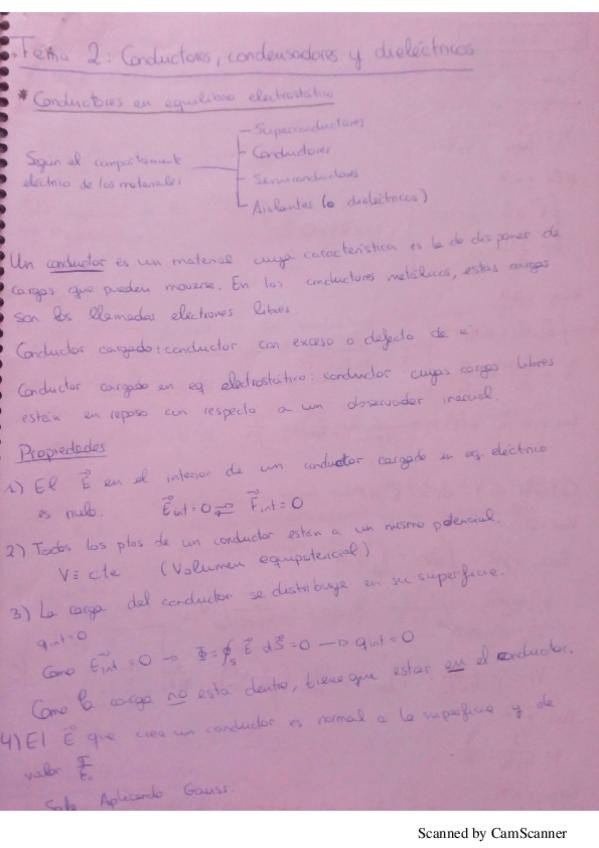 Tema 2: Conductores, condensadores y dieléctricos
* Conductores en equilibrio electrostático
Según el comportamiento
eléctrico de los materiales
- Superconductores
- Conductores
- Semiconductores
- Aislantes (o dieléctricos)
Un conductor es un material cuya característica es la de disponer de
cargas que pueden moverse. En los conductores metálicos, estas cargas
son los llamados electrones libres.
Conductor cargado: conductor con exceso o defecto de e⁻
Conductor cargado en eq electrostático: conductor cuyas cargas libres
están en reposo con respecto a un observador inercial.
Propiedades
1) El E⃗ en el interior de un conductor cargado en eq. eléctrico
es nulo. E⃗int = 0 ⇄ F⃗int = 0
2) Todos los ptos de un conductor están a un mismo potencial.
V ≡ cte (Volumen equipotencial)
3) La carga del conductor se distribuye en su superficie.
qint=0
Como E⃗int = 0 → Φ = ∮s E⃗ dS⃗ = 0 → qint = 0
Como la carga no esta dentro, tiene que estar en el conductor.
4) El E⃗ que crea un conductor es normal a la superficie y de
valor σ/ε₀
Sale Aplicando Gauss.
Scanned by CamScanner